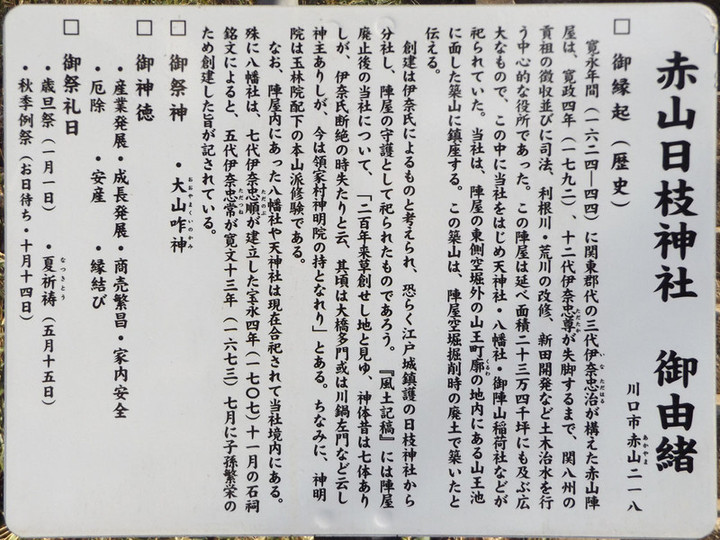 赤山日枝神社　御由緒
川口市赤山二一八
□ 御縁起（歴史）
寛永年間（一六二四―四四）に関東郡代の三代伊奈忠治が構えた赤山陣
屋は、寛政四年（一七九二）、十二代伊奈忠尊が失脚するまで、関八州の
貢祖の徴収並びに司法、利根川・荒川の改修、新田開発など土木治水を行
う中心的な役所であった。この陣屋は延べ面積二十三万四千坪にも及ぶ広
大なもので、この中に当社をはじめ天神社・八幡社・御陣山稲荷社などが
祀られていた。当社は、陣屋の東側空堀外の山王町廓の地内にある山王池
に面した築山に鎮座する。この築山は、陣屋空堀掘削時の廃土で築いたと
伝える。
創建は伊奈氏によるものと考えられ、恐らく江戸城鎮護の日枝神社から
分社し、陣屋の守護として祀られたものであろう。『風土記稿』には陣屋
廃止後の当社について、「二百年来草創せし地と見ゆ、神体昔は七体あり
しが、伊奈氏断絶の時失たりと云、其頃は大橋多門或は川鍋左門など云し
神主ありしが、今は領家村神明院の持となれり」とある。ちなみに、神明
院は玉林院配下の本山派修験である。
なお、陣屋内にあった八幡社や天神社は現在合祀されて当社境内にある。
殊に八幡社は、七代伊奈忠順が建立した宝永四年（一七〇七）十一月の石祠
銘文によると、五代伊奈忠常が寛文十三年（一六七三）七月に子孫繁栄の
ため創建した旨が記されている。
□ 御祭神　・大山咋神
□ 御神徳
・産業発展・成長発展・商売繁昌・家内安全
・厄除　・安産　・縁結び
□ 御祭礼日
・歳旦祭（一月一日）　・夏祈祷（五月十五日）
・秋季例祭（お日待ち・十月十四日）